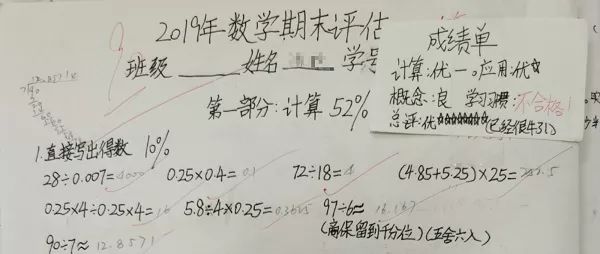 2019年数学期末评估
班级 姓名 学号
成绩单
计算:优一。应用:优☆
概念:良 学习习惯:不合格!
总评:优☆☆☆☆☆☆☆(已经很牛31)
第一部分:计算 52%
1.直接写出得数 10%
28÷0.007=4000 0.25×0.4=0.1 72÷18=4 (4.85+5.25)×25=252.5
0.25×4÷0.25×4=16 5.8÷4×0.25=0.3625 97÷6≈16.167
(商保留到千分位)(五舍六入)
90÷7≈12.8571